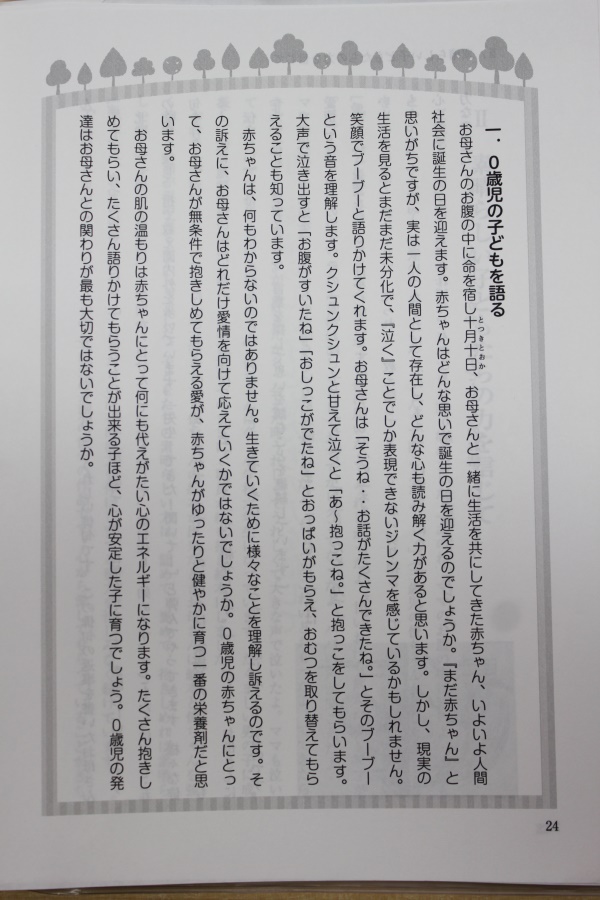 一．０歳児の子どもを語る
お母さんのお腹の中に命を宿し十月十日、お母さんと一緒に生活を共にしてきた赤ちゃん、いよいよ人間
とつきとおか
社会に誕生の日を迎えます。赤ちゃんはどんな思いで誕生の日を迎えるのでしょうか。『まだ赤ちゃん』と
思いがちですが、実は一人の人間として存在し、どんな心も読み解く力があると思います。しかし、現実の
生活を見るとまだまだ未分化で、『泣く』ことでしか表現できないジレンマを感じているかもしれません。
笑顔でブーブーと語りかけてくれます。お母さんは「そうね‥お話がたくさんできたね。」とそのブーブー
という音を理解します。クシュンクシュンと甘えて泣くと「あ～抱っこね。」と抱っこをしてもらいます。
大声で泣き出すと「お腹がすいたね」「おしっこがでたね」とおっぱいがもらえ、おむつを取り替えてもら
えることも知っています。
赤ちゃんは、何もわからないのではありません。生きていくために様々なことを理解し訴えるのです。そ
の訴えに、お母さんはどれだけ愛情を向けて応えていくかではないでしょうか。０歳児の赤ちゃんにとっ
て、お母さんが無条件で抱きしめてもらえる愛が、赤ちゃんがゆったりと健やかに育つ一番の栄養剤だと思
います。
お母さんの肌の温もりは赤ちゃんにとって何にも代えがたい心のエネルギーになります。たくさん抱きし
めてもらい、たくさん語りかけてもらうことが出来る子ほど、心が安定した子に育つでしょう。０歳児の発
達はお母さんとの関わりが最も大切ではないでしょうか。
24